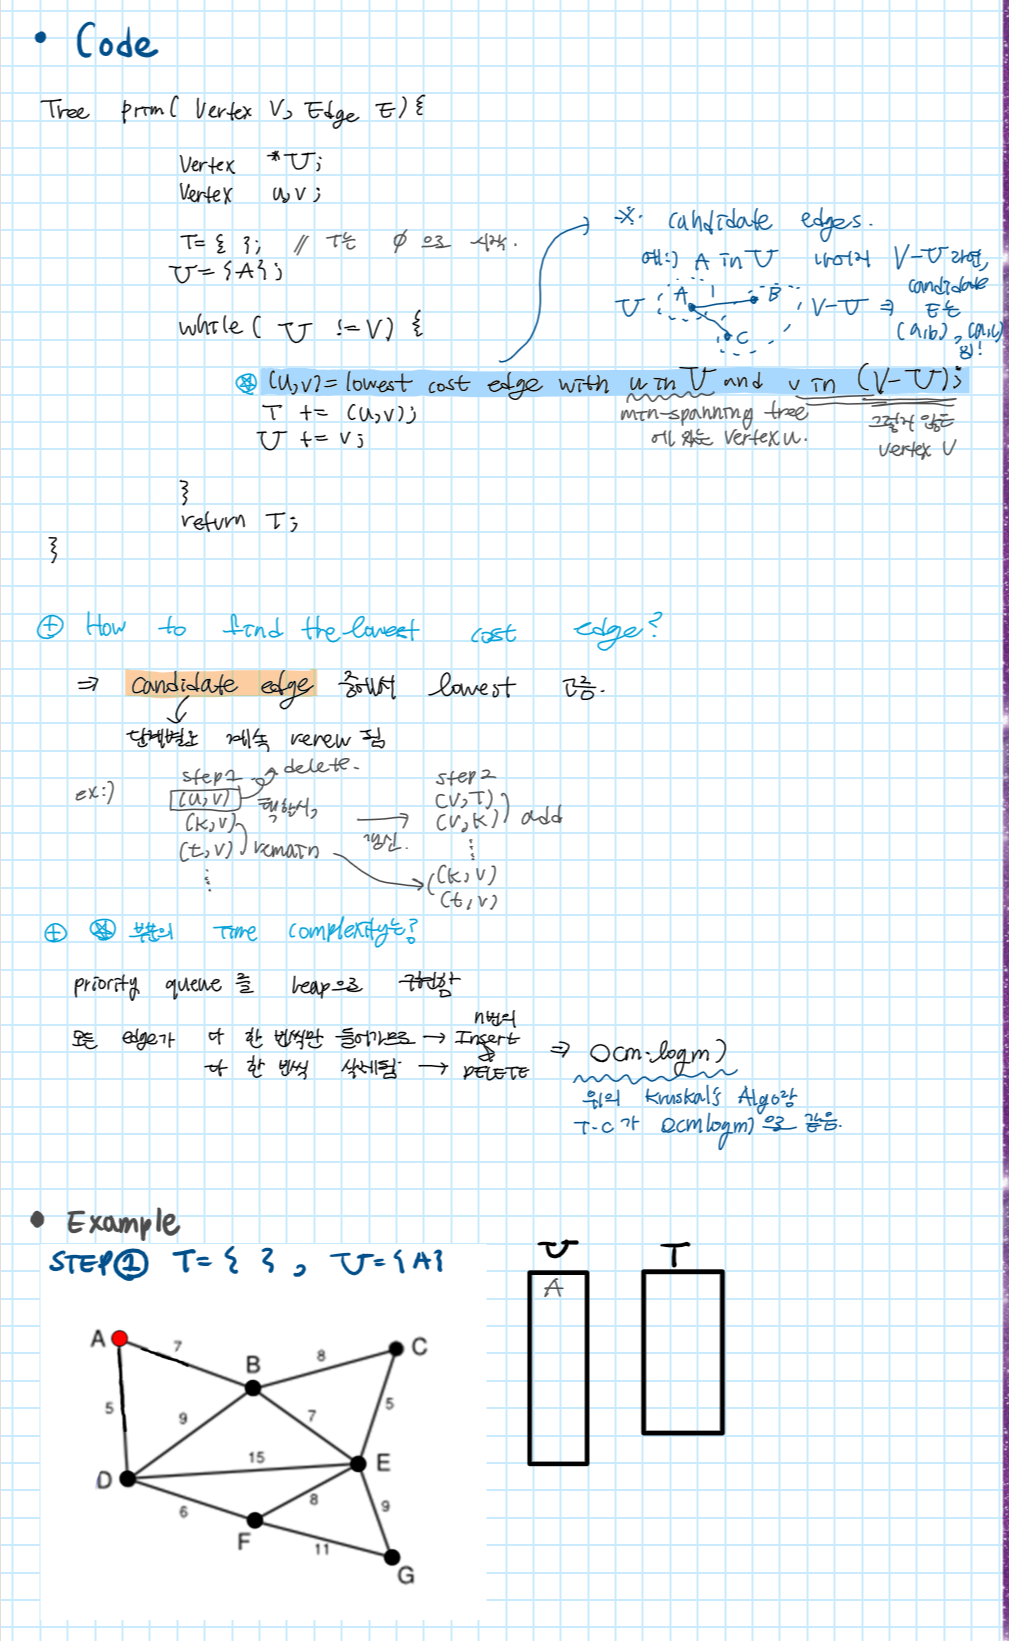 • Code
Tree prim( Vertex V, Edge E){
Vertex *U;
Vertex u,v;
T= { }; // T는 ∅ 으로 시작.
U={A};
while( U != V) {
(u,v)= lowest cost edge with u in U and v in (V-U);
T += (u,v);
U += v;
}
return T;
}
※. candidate edges.
예:) A in U 나머지 V-U 라면,
candidate
U A 1 B V-U ⇒ E는
C (a,b), (a,c)
됨!
min-spanning tree
에 있는 Vertex u.
그렇지 않은
vertex V
⊕ How to find the lowest cost edge?
⇒ candidate edge 중에서 lowest 고름.
단계별로 계속 renew 됨
ex:) step1 delete.
(u,v) 택할시,
(k,v)
(t,v) remain
⋮
→ 갱신.
step2
(v,T)
(v,k) add
⋮
(k,v)
(t,v)
⊕ 부분의 Time complexity는?
priority queue 를 heap으로 구현함
n번의
모든 edge가 다 한 번씩만 들어가므로 → Insert
다 한 번씩 삭제됨 → DELETE
⇒ O(m·logm)
위의 Kruskal's Algo랑
T.C가 O(mlogm)으로 같음.
• Example
STEP① T= { } , U={A}
U T
A
A 7 B 8 C
5 9 7 5
D 15 E
6 8 9
F 11 G